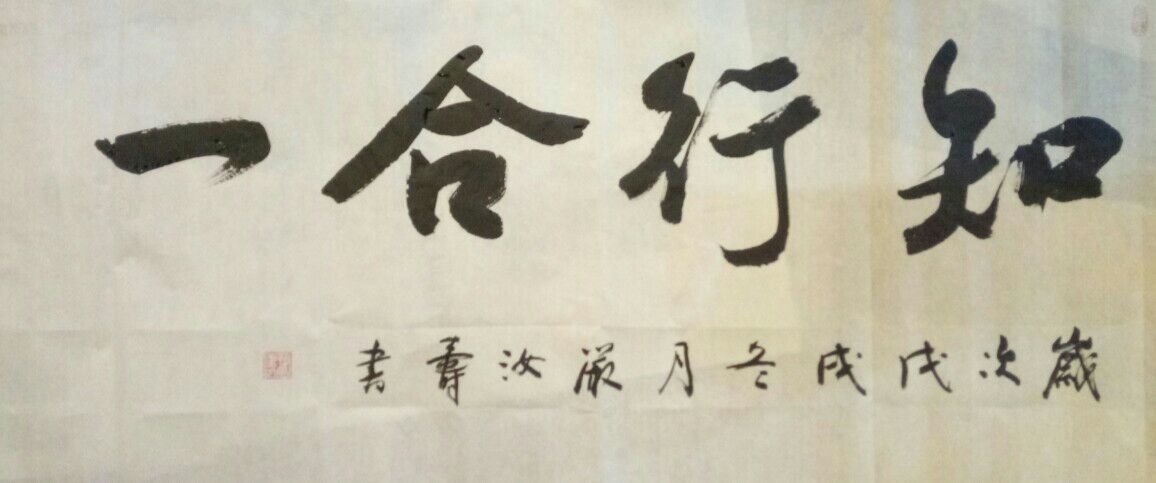 知行合一
歲次戊戌冬月嚴汝壽書